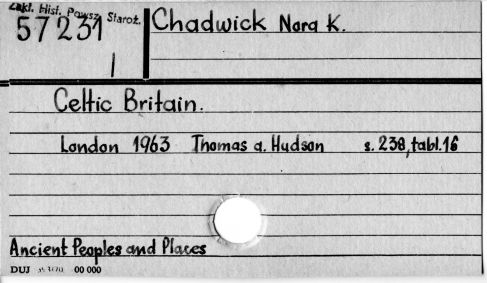 Zakł. Hist. Powsz. Staroż.
57231
Chadwick Nora K.
Celtic Britain.
London 1963 Thomas a. Hudson s. 238, tabl. 16
Ancient Peoples and Places
DUJ 00 000